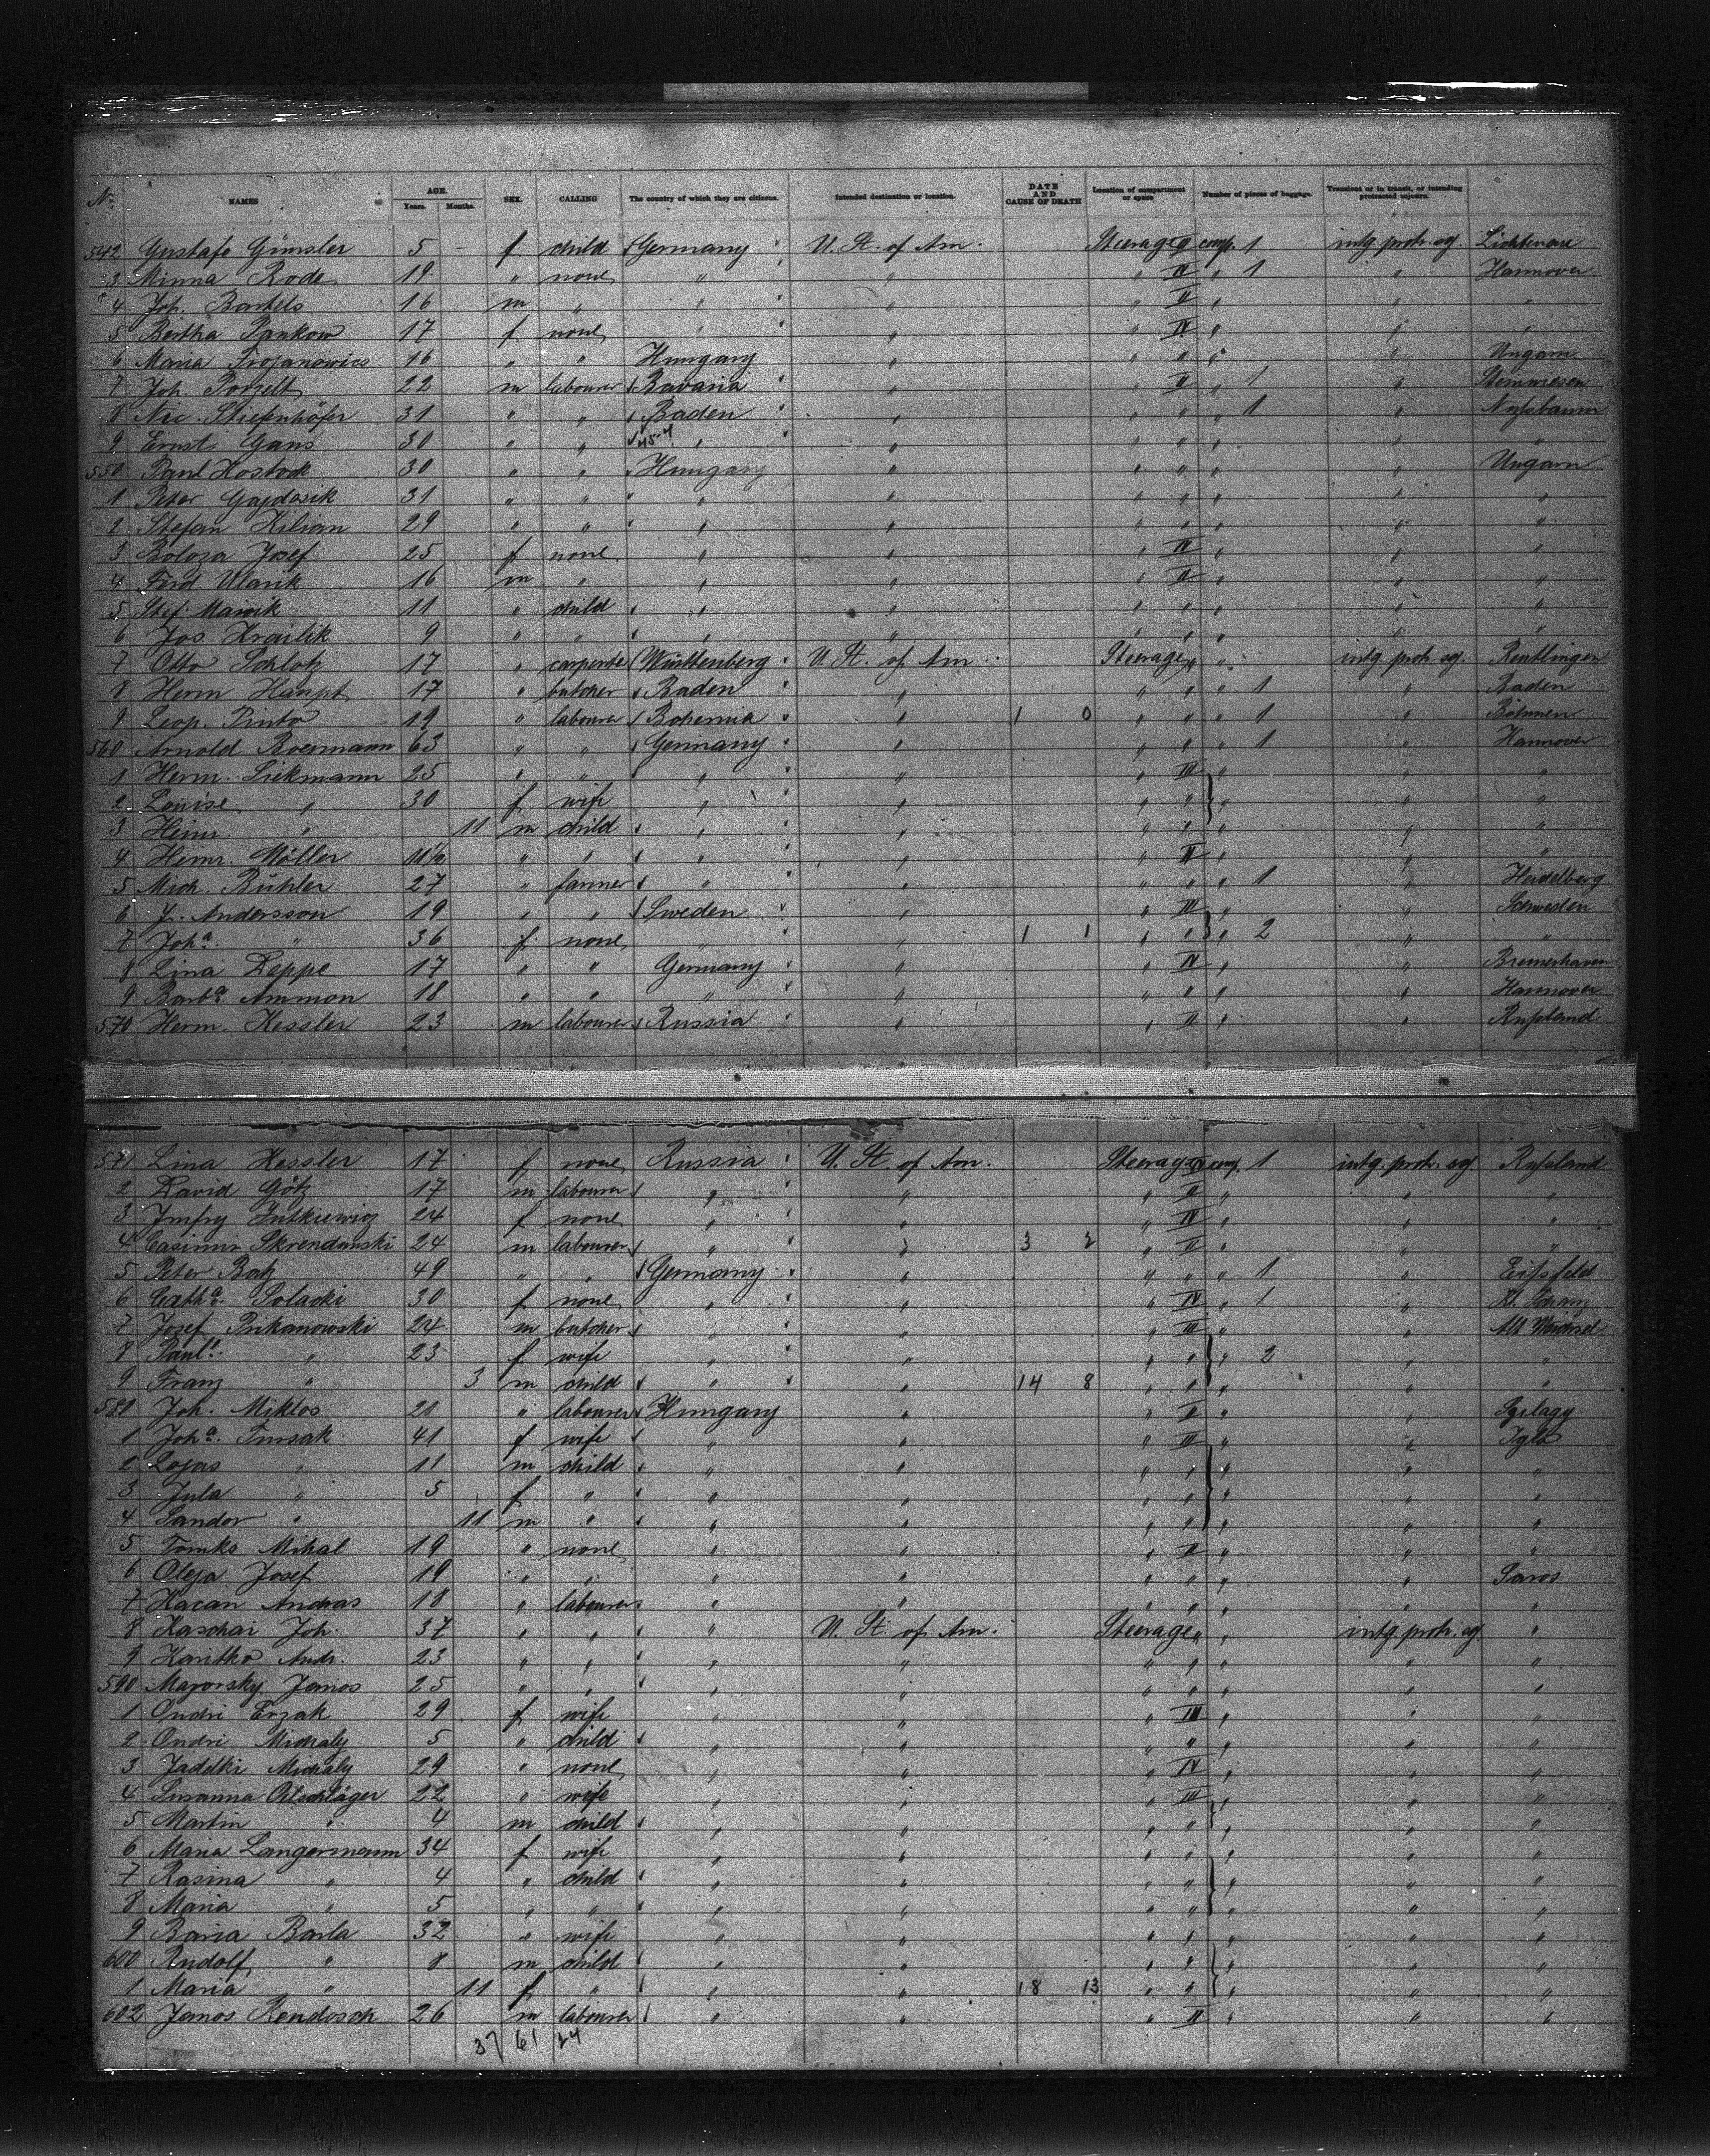 No. NAMES AGE. Years. Months. SEX. CALLING The country of which they are citizens. Intended destination or location. DATE AND CAUSE OF DEATH Location of compartment or space Number of pieces of baggage. Transient or in transit, or intending protracted sojourn.
542 Gustafe Gümsler 5 - f child Germany U. St. of Am. Steerage II comp. 1 intg protr. soj.
3 Minna Rode 19 " none " " " IV " 1 " Hannover
4 Joh. Bartels 16 m " " " " II " " "
5 Bertha Pankow 17 f none " " " IV " " "
6 Maria Trojanowics 16 " " Hungary " " " " " Ungarn
7 Joh. Porzelt 22 m labourer Bavaria " " II " 1 " Steinwiesen
8 Nic. Stiefenhöfer 31 " " Baden " " " " 1 " Nußbaum
9 Ernst Gans 30 " " 45-4 " " " " " " "
550 Paul Hostock 30 " " Hungary " " " " " Ungarn
1 Peter Gajdosik 31 " " " " " " " " "
2 Stefan Kilian 29 " " " " " " " " "
3 Boloza Josef 25 f none " " " IV " " "
4 Ferd Vlarik 16 m " " " " II " " "
5 Stef. Mavrik 11 " child " " " " " " "
6 Jos. Krailik 9 " " " " " " " " "
7 Otto Schlotz 17 " carpenter Württenberg U. St. of Am. Steerage " " intg protr. soj. Reutlingen
8 Herm Haupt 17 " butcher Baden " " " " 1 " Baden
9 Leop. Pinto 19 " labourer Bohemia " 1 0 " " " 1 " Böhmen
560 Arnold Boermann 63 " " Germany " " " " 1 " Hannover
1 Herm. Siekmann 25 " " " " " III " " "
2 Louise " 30 f wife " " " " " " "
3 Heinr. " 11 m child " " " " " " "
4 Heinr. Möller 11½ " " " " " II " " "
5 Mich. Bühler 27 " farmer " " " " " 1 " Heidelberg
6 J. Andersson 19 " " Sweden " " III " " Schweden
7 Joha. " 36 f. none " " 1 1 " " " 2 " "
8 Lina Deppe 17 " " Germany " " IV " " Bremerhaven
9 Barba. Ammon 18 " " " " " " " " Hannover
570 Herm. Kessler 23 m labourer Russia " " II " " Rußland
571 Lina Kessler 17 f none Russia U. St. of Am. Steerage IV comp. 1 intg. protr. soj. Rußland
2 David Götz 17 m labourer " " " II " " "
3 Jutkiewicz 24 f none " " " IV " " "
4 Casimir Skrendewski 24 m labourer " " 3 2 " II " " "
5 Peter Botz 49 " " Germany " " " " 1 " Eißfeld
6 Catha. Polacki 30 f none " " " IV " 1 "
7 Josef Prikanowski 24 m butcher " " " III " "
8 Paula. " 23 f wife " " " " " 2 " "
9 Franz " 3 m child " " 14 8 " " " " "
580 Joh. Miklos 21 " labourer Hungary " " II " " Szilagy
1 Joha. Tursak 41 f wife " " " III " " Iglo
2 Lojos " 11 m child " " " " " " "
3 Jula " 5 f " " " " " " " "
4 Sandor " 11 m " " " " " " " "
5 Tomko Mihal 19 " none " " " II " " "
6 Oleja Josef 19 " " " " " " " " Saros
7 Kacan Andras 18 " labourer " " " " " " "
8 Kaschai Joh. 37 " " " U. St. of Am. Steerage " " intg protr. soj. "
9 Hanitko Andr. 23 " " " " " " " " "
590 Majorsky Janos 25 " " " " " " " " "
1 Ondri Erzak 29 f wife " " " III " " "
2 Ondri Michaly 5 " child " " " " " " "
3 Jadelki Michaly 29 " none " " " IV " " "
4 Susanna Ohlschläger 22 " wife " " " III " " "
5 Martin " 4 m child " " " " " " "
6 Maria Langermann 34 f wife " " " " " " "
7 Rasina " 4 " child " " " " " " "
8 Maria " 5 " " " " " " " " "
9 Baria Barla 32 " wife " " " " " " "
600 Rudolf " 8 m child " " " " " " "
1 Maria " 11 f " " " 18 13 " " " " "
602 Janos Rendosch 26 m labourer " " " II " " "
37 61 24